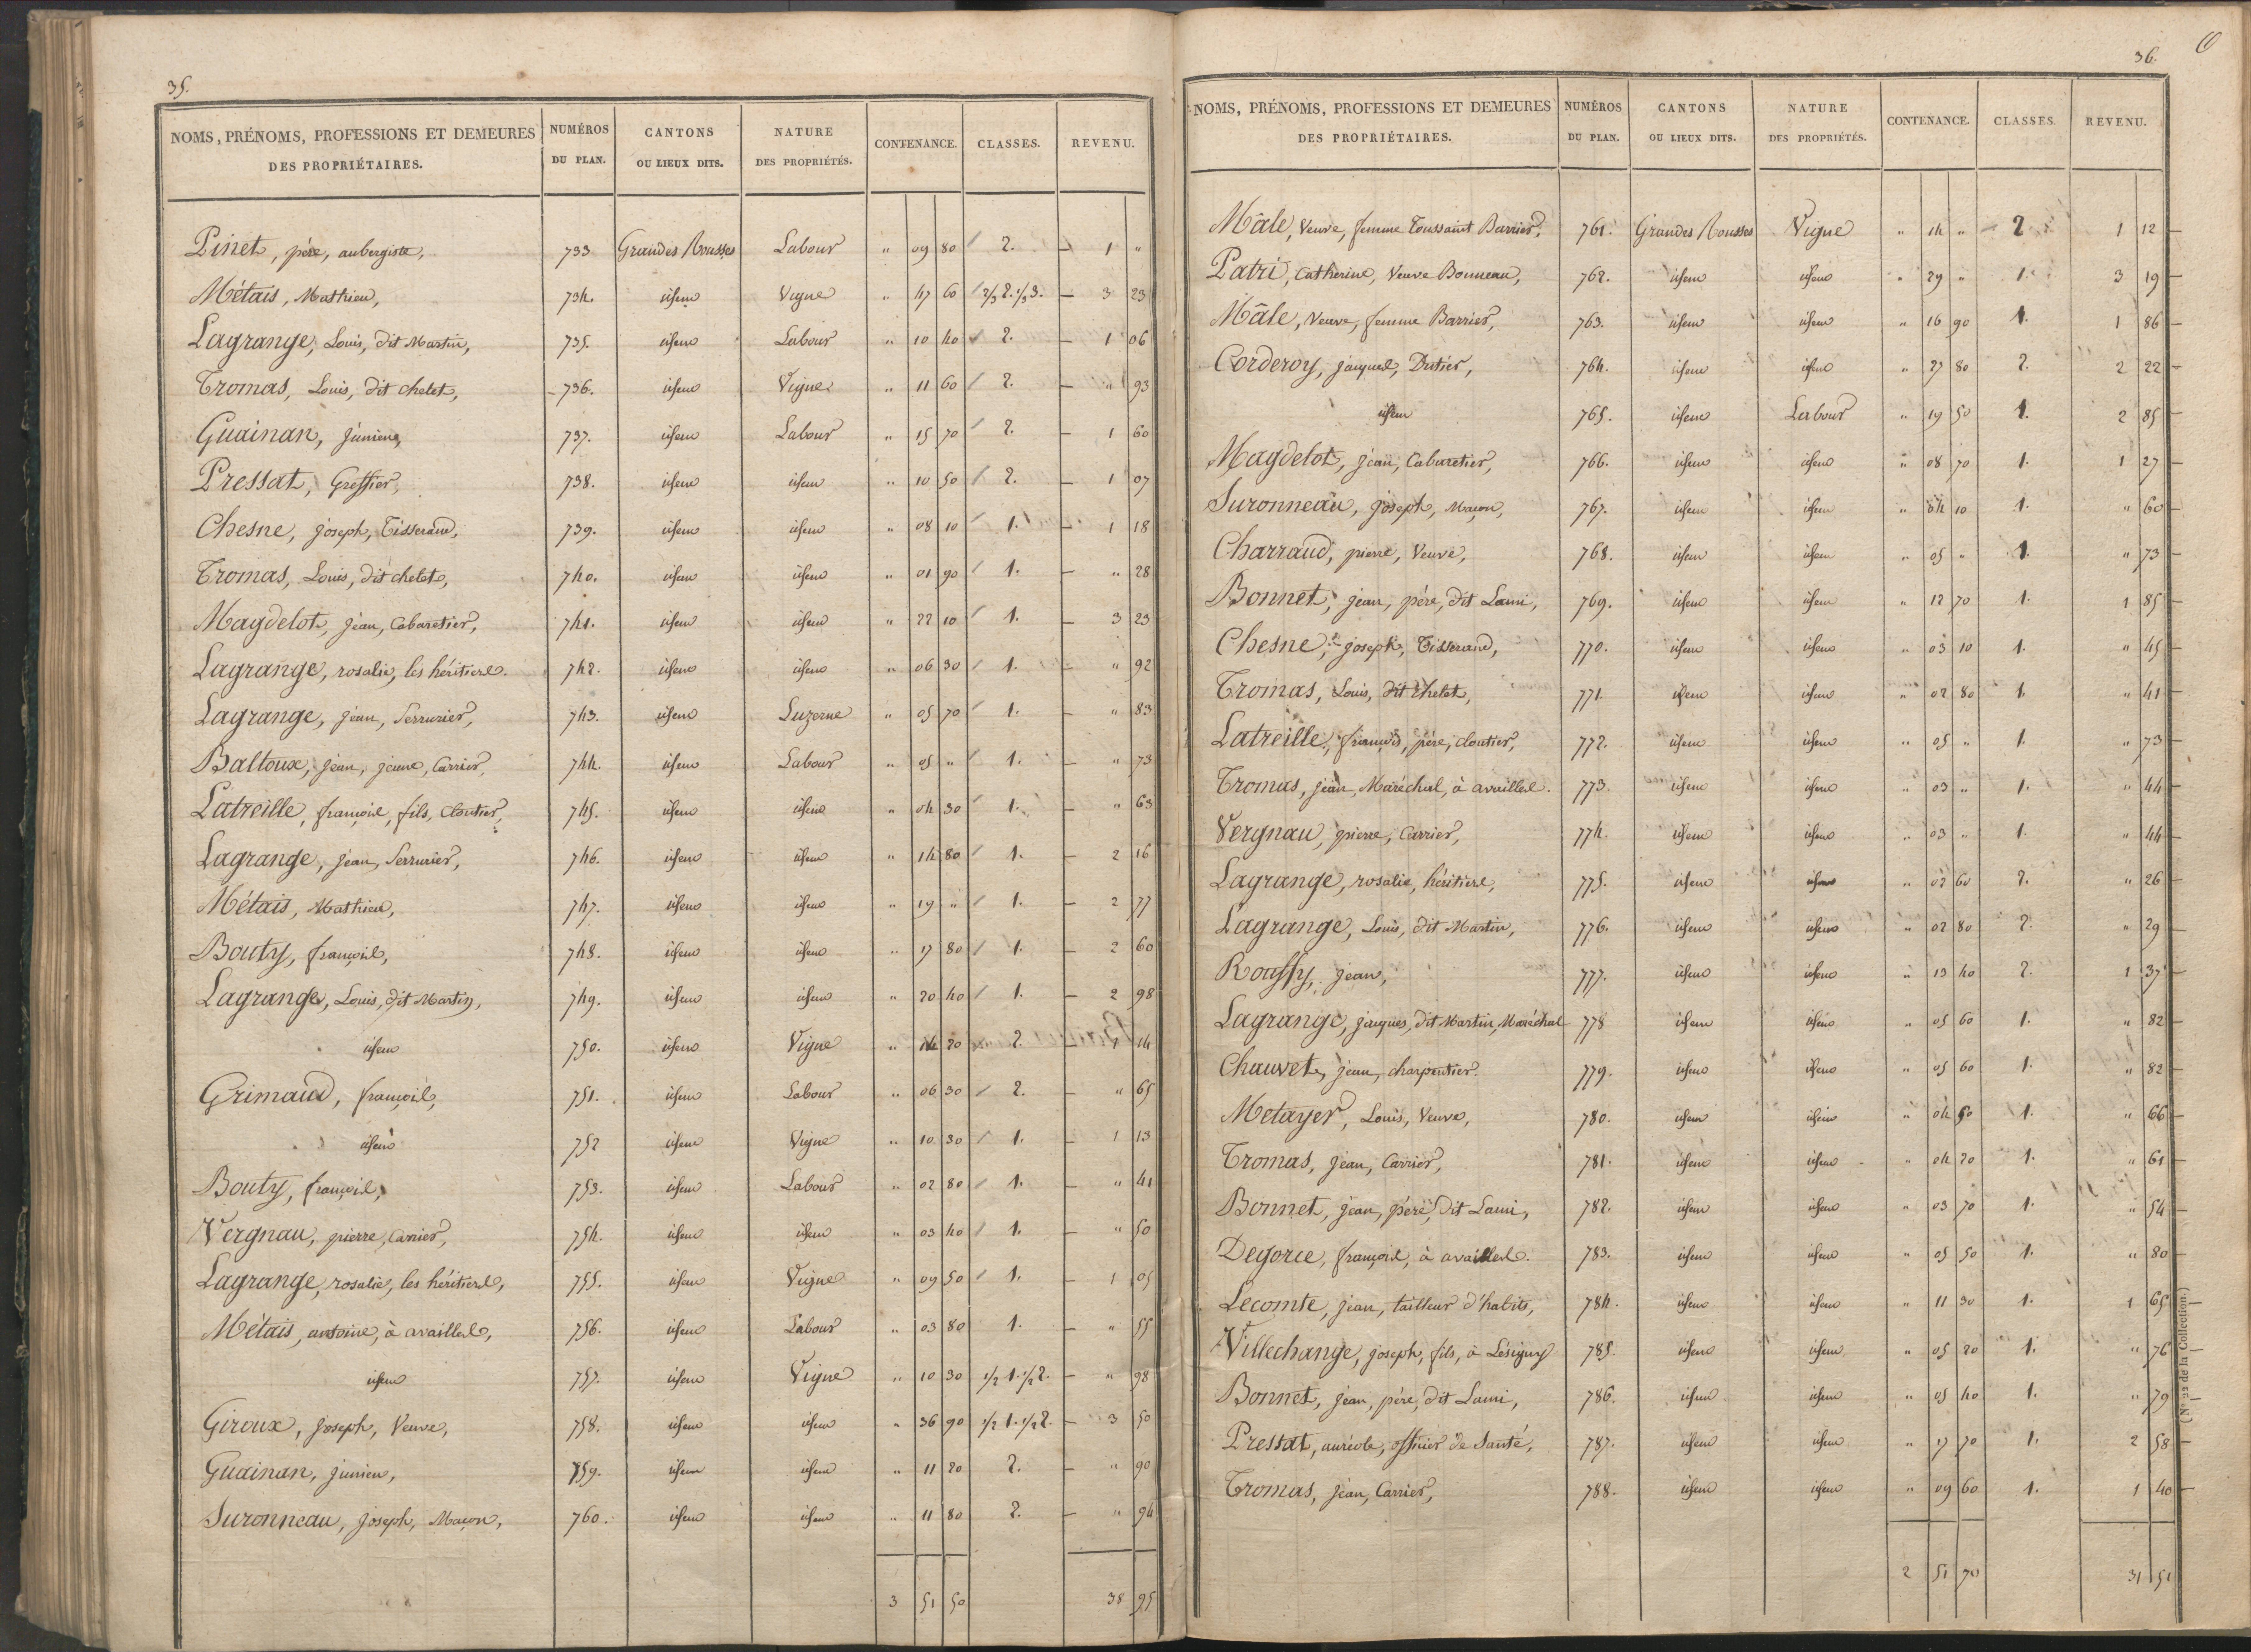 35.
NOMS, PRÉNOMS, PROFESSIONS ET DEMEURES DES PROPRIÉTAIRES. NUMÉROS DU PLAN. CANTONS OU LIEUX DITS. NATURE DES PROPRIÉTÉS. CONTENANCE. CLASSES. REVENU.
Pinet, père, aubergiste, 733 Grandes Rousses Labour " 09 80 2. 1 "
Métais, Mathieu, 734. idem Vigne " 47 60 2/3 2. 1/3 3. 3 23
Lagrange, Louis, dit Martin, 735. idem Labour " 10 40 2. 1 06
Tromas, Louis, dit chelet, 736. idem Vigne " 11 60 2. " 93
Guainan, junien, 737. idem Labour " 15 70 2. 1 60
Pressat, Greffier, 738. idem idem " 10 50 2. 1 07
Chesne, joseph, Tisserand, 739. idem idem " 08 10 1. 1 18
Tromas, Louis, dit chelet, 740. idem idem " 01 90 1. " 28
Magdelot, jean, Cabaretier, 741. idem idem " 22 10 1. 3 23
Lagrange, rosalie, les héritiers. 742. idem idem " 06 30 1. " 92
Lagrange, jean, Serrurier, 743. idem Luzerne " 05 70 1. " 83
Baltoux, jean, jeune, Carrier, 744. idem Labour " 05 " 1. " 73
Latreille, françois, fils, Cloutier, 745. idem idem " 04 30 1. " 63
Lagrange, jean, Serrurier, 746. idem idem " 14 80 1. 2 16
Métais, Mathieu, 747. idem idem " 19 " 1. 2 77
Bouty, françois, 748. idem idem " 17 80 1. 2 60
Lagrange, Louis, dit Martin, 749. idem idem " 20 40 1. 2 98
idem 750. idem Vigne " 14 20 2. 1 14
Grimaud, françois, 751. idem Labour " 06 30 2. " 65
idem 752 idem Vigne " 10 30 1. 1 13
Bouty, françois, 753. idem Labour " 02 80 1. " 41
Vergnau, pierre, Carrier, 754. idem idem " 03 40 1. " 50
Lagrange, rosalie, les héritiers, 755. idem Vigne " 09 50 1. 1 05
Métais, antoine, à availles, 756. idem Labour " 03 80 1. " 55
idem 757. idem Vigne " 10 30 1/2 1. 1/2 2. " 98
Giroux, joseph, Veuve, 758. idem idem " 36 90 1/2 1. 1/2 2. 3 50
Guainan, junien, 759. idem idem " 11 20 2. " 90
Suronneau, joseph, Maçon, 760. idem idem " 11 80 2. " 94
3 51 50 38 95
36.
NOMS, PRÉNOMS, PROFESSIONS ET DEMEURES DES PROPRIÉTAIRES. NUMÉROS DU PLAN. CANTONS OU LIEUX DITS. NATURE DES PROPRIÉTÉS. CONTENANCE. CLASSES. REVENU.
Mâle, Veuve, femme Toussaint Barrier, 761. Grandes Rousses Vigne " 14 " 2 1 12
Patri, Catherine, Veuve Bonneau, 762. idem idem " 29 " 1. 3 19
Mâle, Veuve, femme Barrier, 763. idem idem " 16 90 1. 1 86
Corderoy, jacques, Dutier, 764. idem idem " 27 80 2. 2 22
idem 765. idem Labour " 19 50 1. 2 85
Magdelot, jean, Cabaretier, 766. idem idem " 08 70 1. 1 27
Suronneau, joseph, Maçon, 767. idem idem " 04 10 1. " 60
Charraud, pierre, Veuve, 768. idem idem " 05 " 1. " 73
Bonnet, jean, père, dit Lami, 769. idem idem " 12 70 1. 1 85
Chesne, joseph, Tisserand, 770. idem idem " 03 10 1. " 45
Tromas, Louis, dit chelet, 771. idem idem " 02 80 1. " 41
Latreille, françois, père, cloutier, 772. idem idem " 05 " 1. " 73
Tromas, jean, Maréchal, à availles. 773. idem idem " 03 " 1. " 44
Vergnau, pierre, Carrier, 774. idem idem " 03 " 1. " 44
Lagrange, rosalie, héritiers, 775. idem idem " 02 60 2. " 26
Lagrange, Louis, dit Martin, 776. idem idem " 02 80 2. " 29
Rouffy, jean, 777. idem idem " 13 40 2. 1 37
Lagrange, jacques, dit Martin, Maréchal 778 idem idem " 05 60 1. " 82
Chauvet, jean, charpentier. 779. idem idem " 05 60 1. " 82
Metayer, Louis, Veuve, 780. idem idem " 04 50 1. " 66
Tromas, jean, Carrier, 781. idem idem " 04 20 1. " 61
Bonnet, jean, père, dit Lami, 782. idem idem " 03 70 1. " 54
Degorce, françois, à availles. 783. idem idem " 05 50 1. " 80
Lecomte, jean, tailleur d'habits, 784. idem idem " 11 30 1. 1 65
Villechange, joseph, fils, à Lésigny 785. idem idem " 05 20 1. " 76
Bonnet, jean, père, dit Lami, 786. idem idem " 05 40 1. " 79
Pressat, auréole, officier de Santé, 787. idem idem " 17 70 1. 2 58
Tromas, jean, Carrier, 788. idem idem " 09 60 1. 1 40
2 51 70 31 51
(N° 22 de la Collection.)